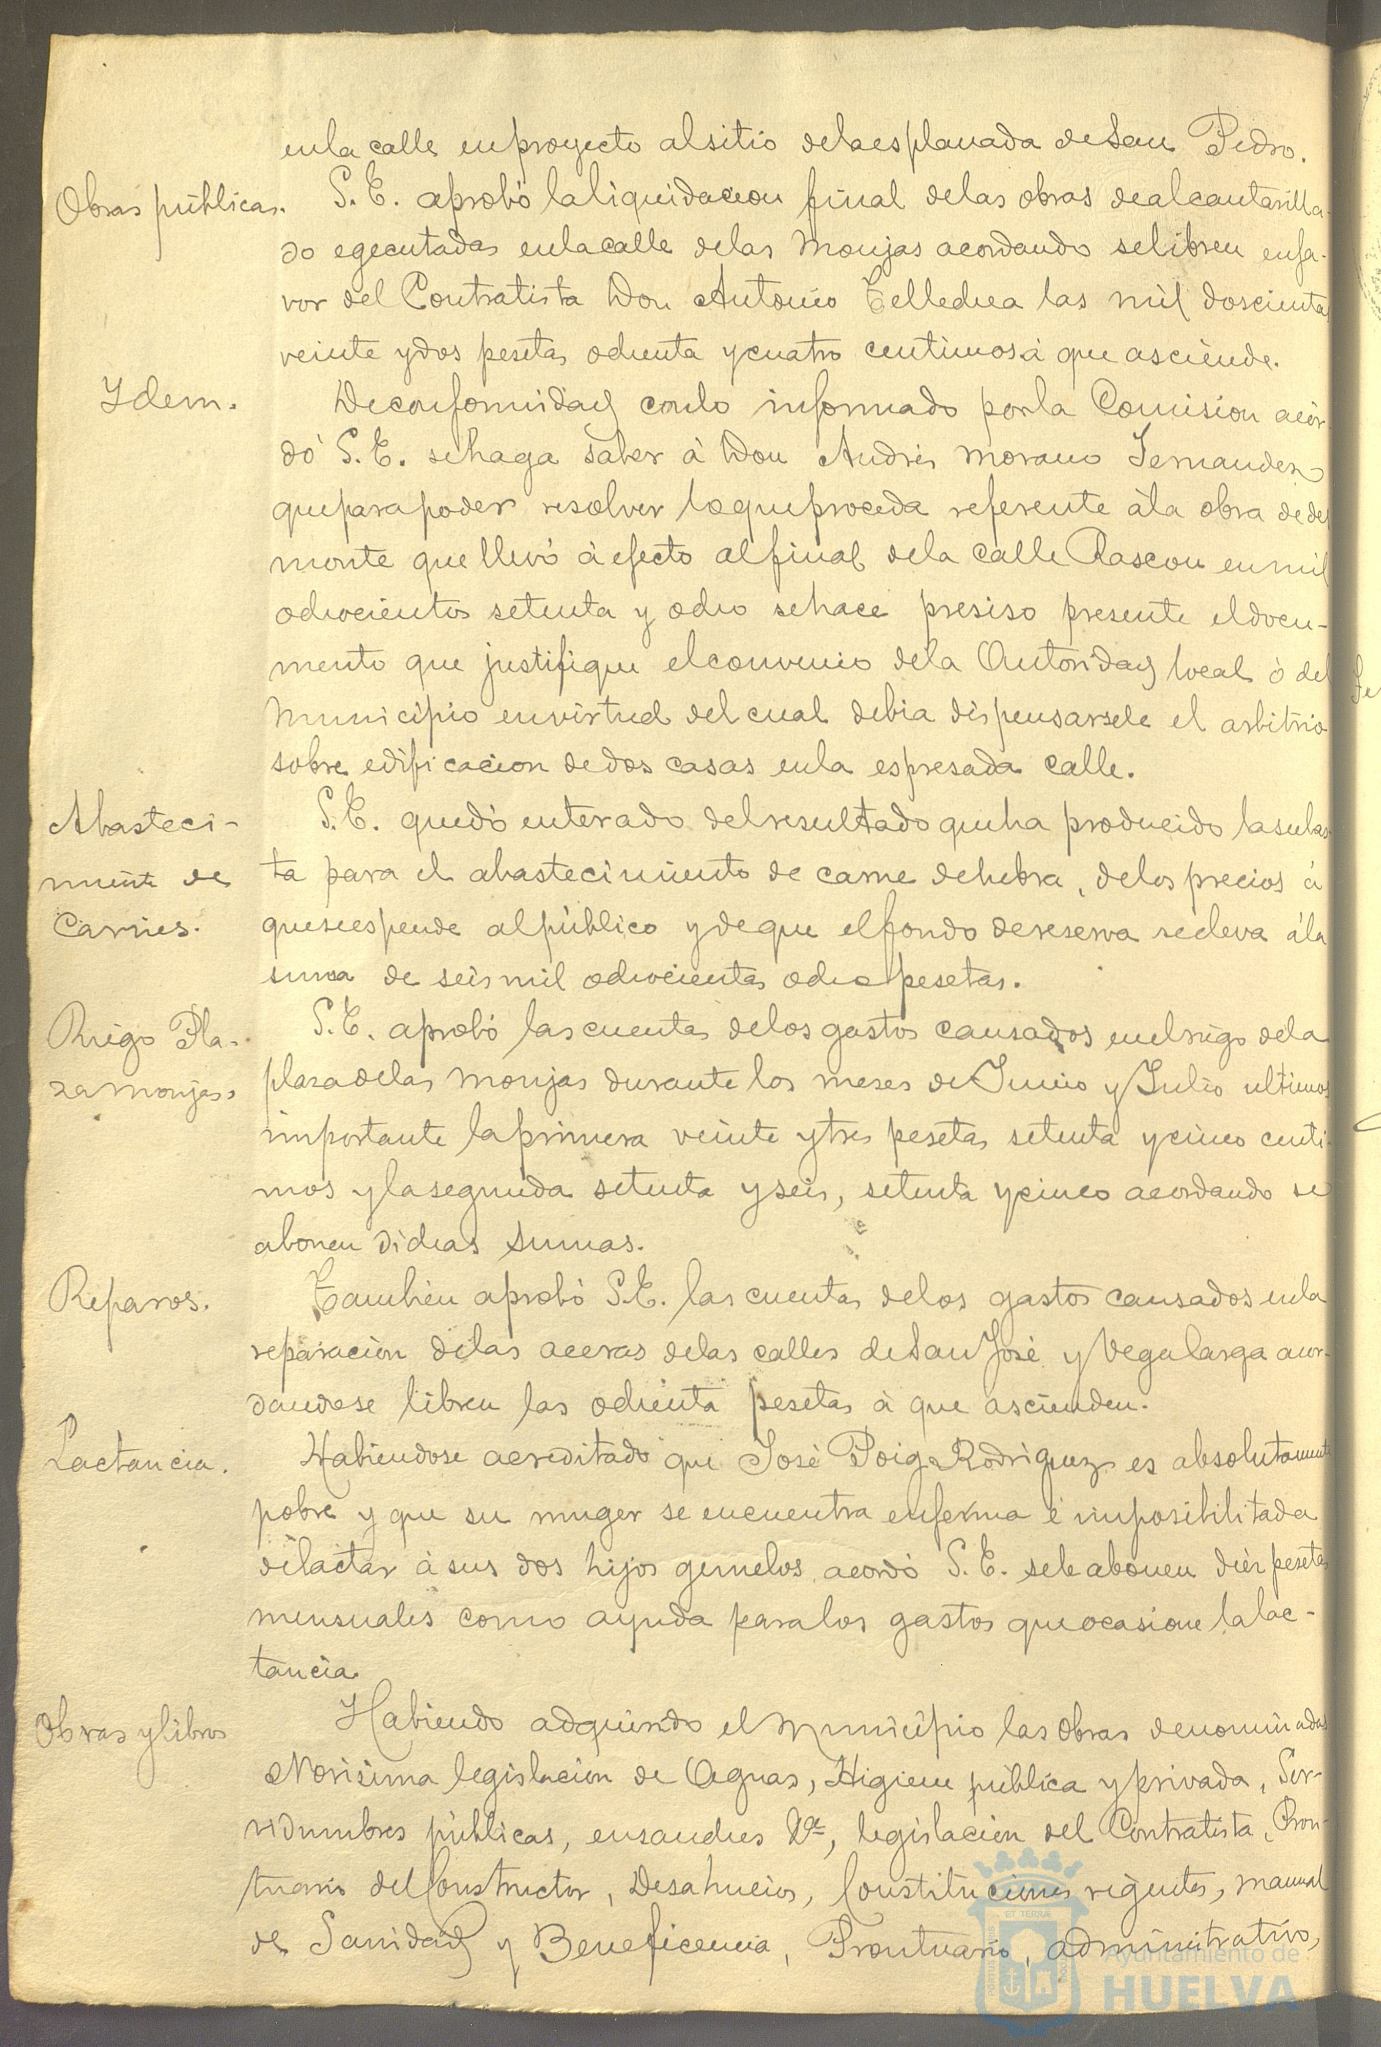 en la calle en proyecto al sitio de la esplanada de San Pedro.
Obras públicas. S. E. aprobó la liquidacion final de las obras de alcantarilla-
do egecutadas en la calle de las Monjas acordando se libren en fa-
vor del Contratista Don Antonio Tellechea las mil doscientas
veinte y dos pesetas ochenta y cuatro centimos á que asciende.
Ydem. De conformidad con lo informado por la Comision acor-
dó S. E. se haga saber á Don Andrés Morano Fernandez
que para poder resolver lo que proceda referente á la obra de des
monte que llevó á efecto al final de la calle Rascon en mil
ochocientos setenta y ocho se hace presiso presente el docu-
mento que justifique el convenio de la Autoridad local ó del
Municipio en virtud del cual debia dispensarsele el arbitrio
sobre edificacion de dos casas en la espresada calle.
Abasteci-
miento de
Carnes. S. E. quedó enterado del resultado que ha producido la subas-
ta para el abastecimiento de carne de hebra, de los precios á
que se espende al público y de que el fondo de reserva se eleva á la
suma de seis mil ochocientas ocho pesetas.
Riego Pla-
za Monjas. S. E. aprobó las cuentas de los gastos causados en el riego de la
plaza de las Monjas durante los meses de Junio y Julio ultimos
importante la primera veinte y tres pesetas setenta y cinco centi-
mos y la segunda setenta y seis, setenta y cinco acordando se
abonen dichas sumas.
Reparos. Tambien aprobó S. E. las cuentas de los gastos causados en la
reparacion de las aceras de las calles de San José y Vega larga acor-
dandose libren las ochenta pesetas á que ascienden.
Lactancia. Habiendose acreditado que José Poig Rodriguez es absolutamente
pobre y que su muger se encuentra enferma é imposibilitada
de lactar á sus dos hijos gemelos, acordó S. E. se le abonen diez pesetas
mensuales como ayuda para los gastos que ocasione la lac-
tancia
Obras y libros Habiendo adquirido el Municipio las obras denominadas
Novisima legislacion de Aguas, Higiene pública y privada, Ser-
vidumbres públicas, ensanches &ª, legislacion del Contratista, Pron-
tuario del Constructor, Desahucios, Constituciones vigentes, manual
de Sanidad y Beneficencia, Prontuario, administrativo,
Ayuntamiento de
HUELVA